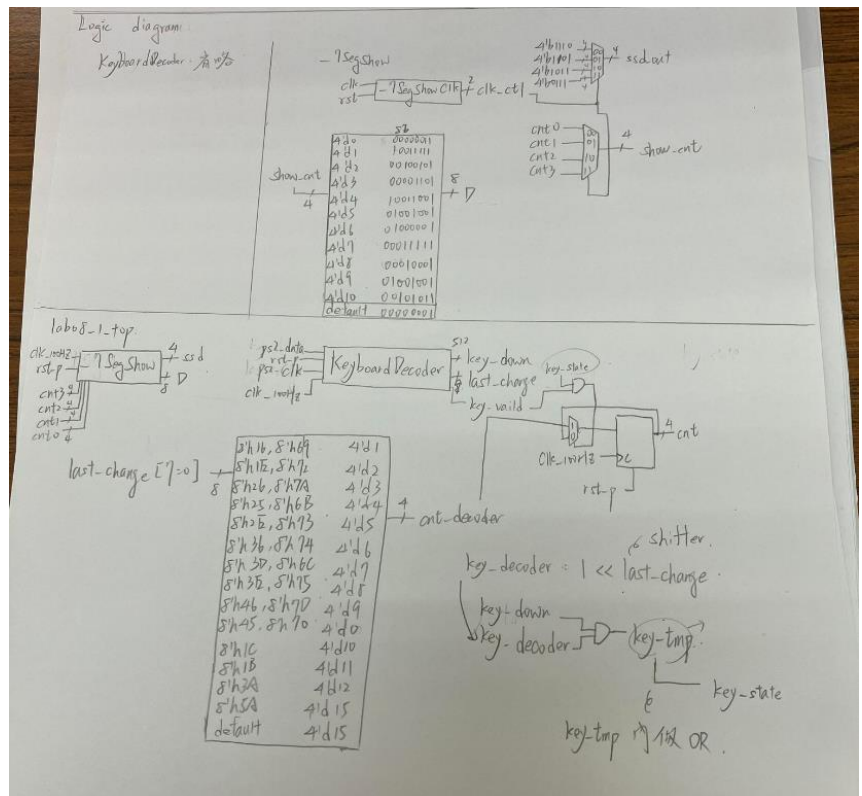 Logic diagram:
KeyboardDecoder.
_7SegShow
clk
rst
_7SegShowClk
2
clk_ctl
4'b1110
4'b1101
4'b1011
4'b0111
4
ssdout
cnt0
cnt1
cnt2
cnt3
00
01
10
11
4
show_cnt
show_cnt
4
4'd0 0000011
4'd1 1001111
4'd2 00100101
4'd3 00001101
4'd4 10011001
4'd5 01001001
4'd6 01000001
4'd7 00011111
4'd8 00010001
4'd9 01001001
4'd10 00101011
default 00000001
8
D
lab08_1_top:
clk_100HZ
rst_p
cnt3
cnt2
cnt1
cnt0
4
_7SegShow
4
ssd
8
D
ps2_data
rst_p
ps2_clk
clk_100Hz
KeyboardDecoder
512
key_down
9
last_change
key_vaild
key_state
1
0
Clk_100HZ
C
rst_p
4
cnt
last_change [7:0]
8
8'h16, 8'h69 4'd1
8'h1E, 8'h72 4'd2
8'h26, 8'h7A 4'd3
8'h25, 8'h6B 4'd4
8'h2E, 8'h73 4'd5
8'h36, 8'h74 4'd6
8'h3D, 8'h6C 4'd7
8'h3E, 8'h75 4'd8
8'h46, 8'h7D 4'd9
8'h45, 8'h70 4'd0
8'h1C 4'd10
8'h1B 4'd11
8'h3A 4'd12
8'h5A 4'd15
default 4'd15
4
cnt_decoder
shifter.
key_decoder = 1 << last_change.
key_down
key_decoder
key_tmp
key_state
key_tmp 內做 OR.